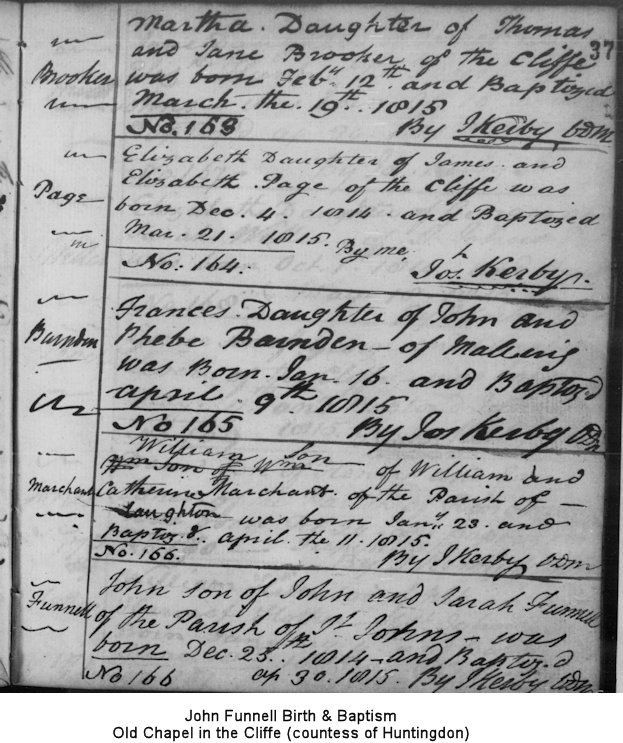 37
Martha Daughter of Thomas
and Jane Brooker of the Cliffe
Brooker was born Feby 12th and Baptized
March the 19th 1815
No. 163 By J Kerby
Elizabeth Daughter of James and
Page Elizabeth Page of the Cliffe was
born Dec. 4. 1814 and Baptized
Mar. 21. 1815. By me,
No. 164. Jos. Kerby.
Frances Daughter of John and
Barnden Phebe Barnden of Malling
was Born Jan. 16 and Baptizd
april 9th 1815
No 165 By Jos Kerby
William Son
Wm Son of Wm of William and
Marchant Catherine Marchant of the Parish of
Laughton was born Jany 23. and
Baptizd april the 11. 1815.
No. 166. By J Kerby
John son of John and Sarah Funnell
Funnell of the Parish of St Johns was
born Dec. 25th 1814 and Baptizd
No 166 ap 30. 1815. By J Kerby
John Funnell Birth & Baptism
Old Chapel in the Cliffe (countess of Huntingdon)